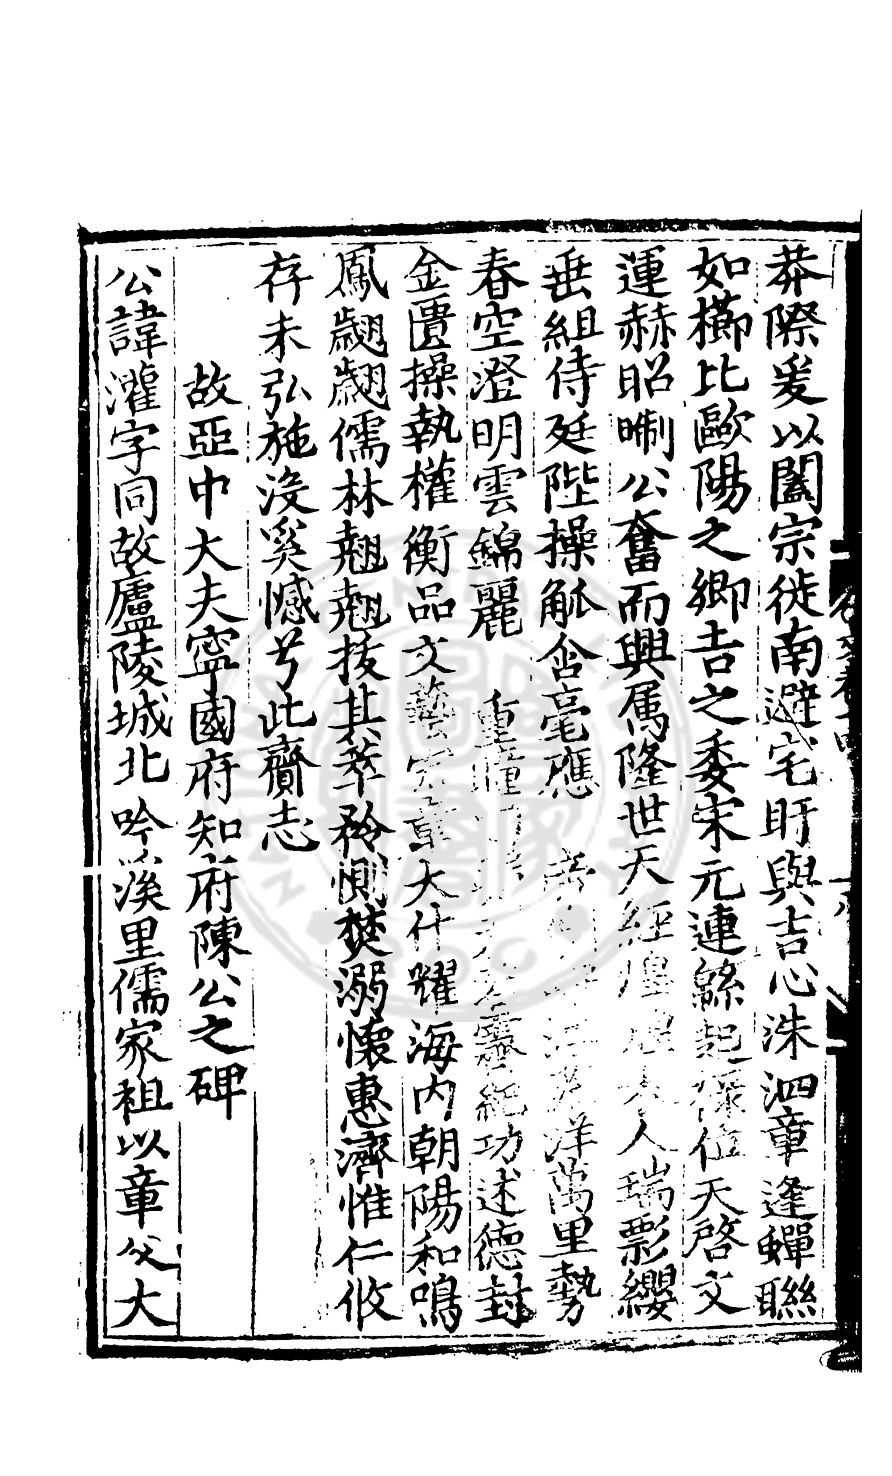 莽際爰以闔宗徙南避宅盱與吉心洙泗章逢蟬聯
如櫛比歐陽之鄉吉之委宋元連緜起祿位天啓文
運赫昭晣公奮而興属隆世天經煌煌大人瑞影纓
垂組侍廷陛操觚含毫應洋萬里勢
春空澄明雲錦麗重瞳靈絕功述德封
金匱操執權衡品文藝宏章大什耀海内朝陽和鳴
鳳翽翽儒林翹翹拔其萃矜惻焚溺懷惠濟惟仁攸
存未弘施没奚憾兮此齎志
故亞中大夫寧國府知府陳公之碑
公諱灌字同故廬陵城北吟溪里儒家祖以章父大